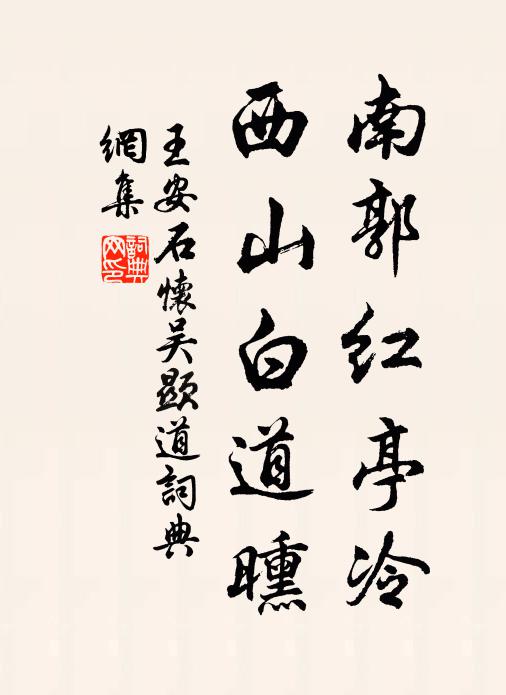 南郭红亭冷
西山白道曛
王安石懷吴顯道詞典
網集
詞典
网印